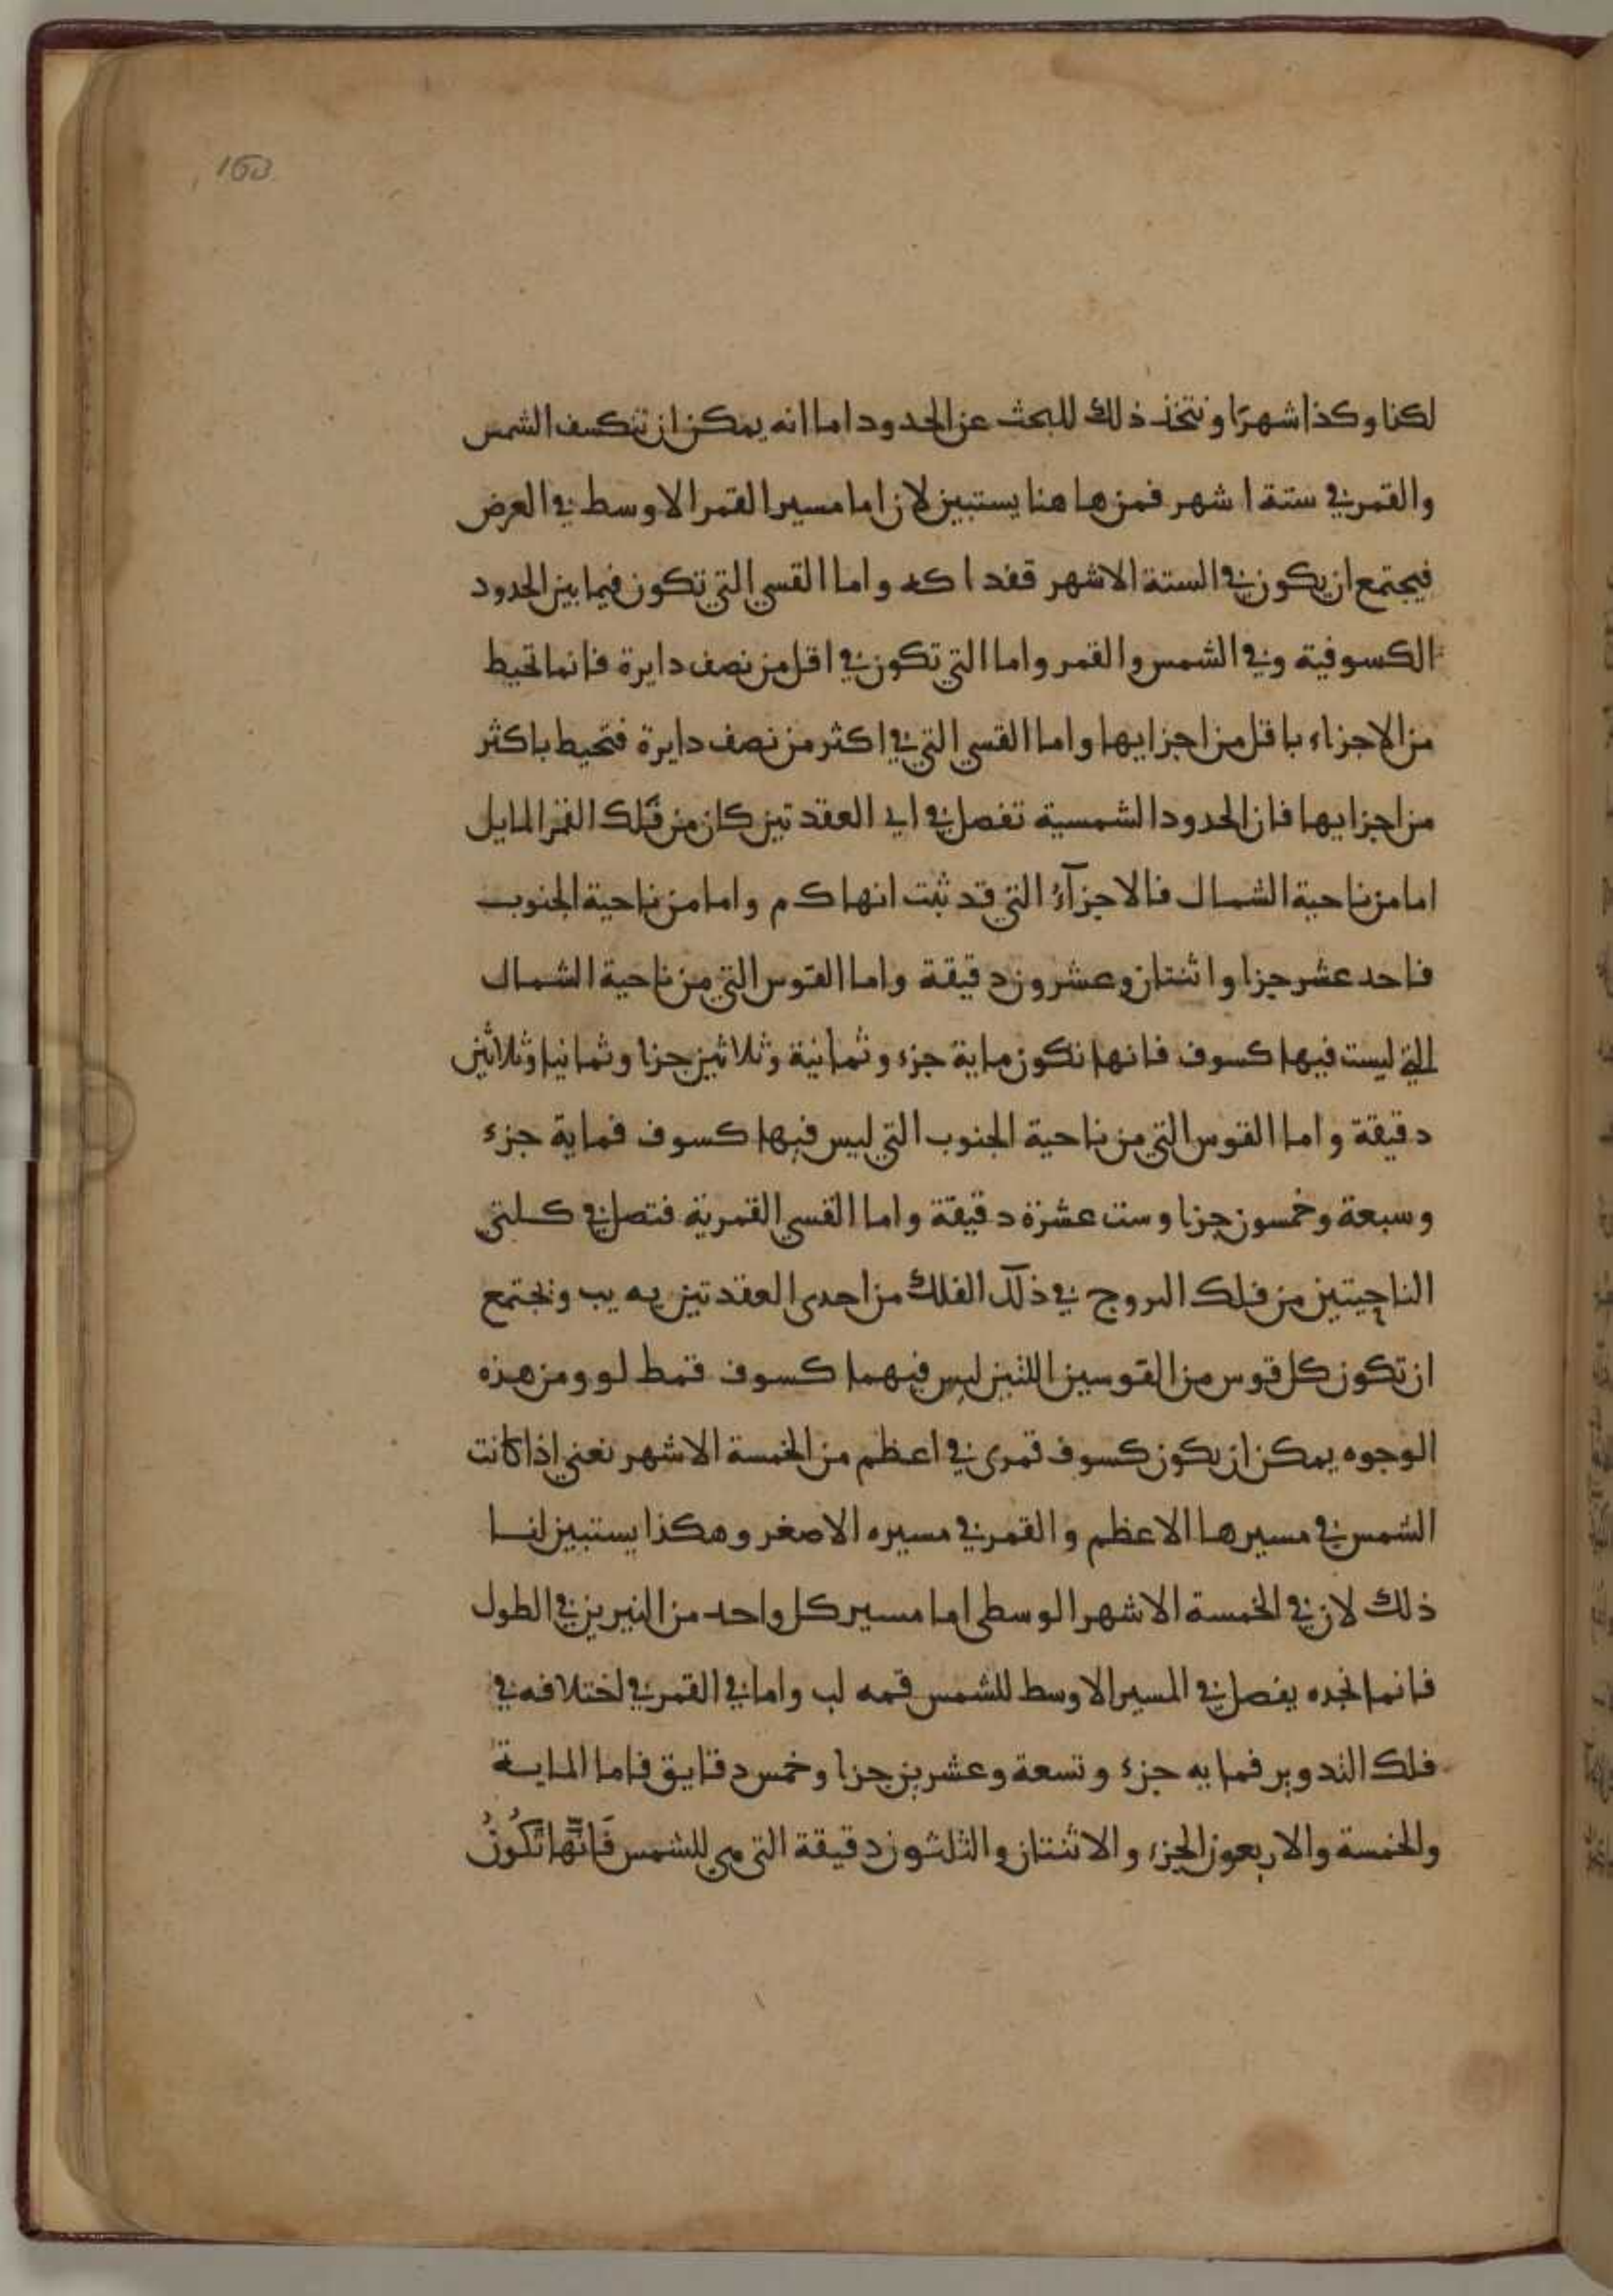 160
لكذا وكذا شهرًا ونتخذ ذلك للبحث عن الحدود اما انه يمكن ان تنكسف الشمس
والقمر في ستة اشهر فمن هاهنا يستبين لان اما مسير القمر الاوسط في العرض
فيجتمع ان يكون في الستة الاشهر قفد ا كه واما القسي التي تكون فيما بين الحدود
الكسوفية وفي الشمس والقمر واما التي تكون في اقل من نصف دايرة فانما تحيط
من الاجزاء باقل من اجزايها واما القسي التي في اكثر من نصف دايرة فتحيط باكثر
من اجزايها فان الحدود الشمسية تفصل في اي العقدتين كان من فلك القمر المايل
اما من ناحية الشمال فالاجزآء التي قد ثبت انها ك م واما من ناحية الجنوب
فاحد عشر جزا واثنتان وعشرون دقيقة واما القوس التي من ناحية الشمال
التي ليست فيها كسوف فانها تكون ماية جزء وثمانية وثلاثين جزا وثمانيا وثلاثين
دقيقة واما القوس التي من ناحية الجنوب التي ليس فيها كسوف فماية جزء
وسبعة وخمسون جزا وست عشرة دقيقة واما القسي القمرية فتصل في كلتي
الناحيتين من فلك البروج في ذلك الفلك من احدى العقدتين يه يب ونجتمع
ان تكون كل قوس من القوسين اللتين ليس فيهما كسوف قمط لو ومن هذه
الوجوه يمكن ان يكون كسوف قمري في اعظم من الخمسة الاشهر نعني اذا كانت
الشمس في مسيرها الاعظم والقمر في مسيره الاصغر وهكذا يستبين لنا
ذلك لان في الخمسة الاشهر الوسطى اما مسير كل واحد من النيرين في الطول
فانما نجده يفصل في المسير الاوسط للشمس قمه لب واما في القمر في اختلافه في
فلك التدوير فمايه جزء وتسعة وعشرين جزا وخمس دقايق فاما الماية
والخمسة والاربعون الجزء والاثنتان والثلثون دقيقة التي هي للشمس فَانَّها تَكُونُ